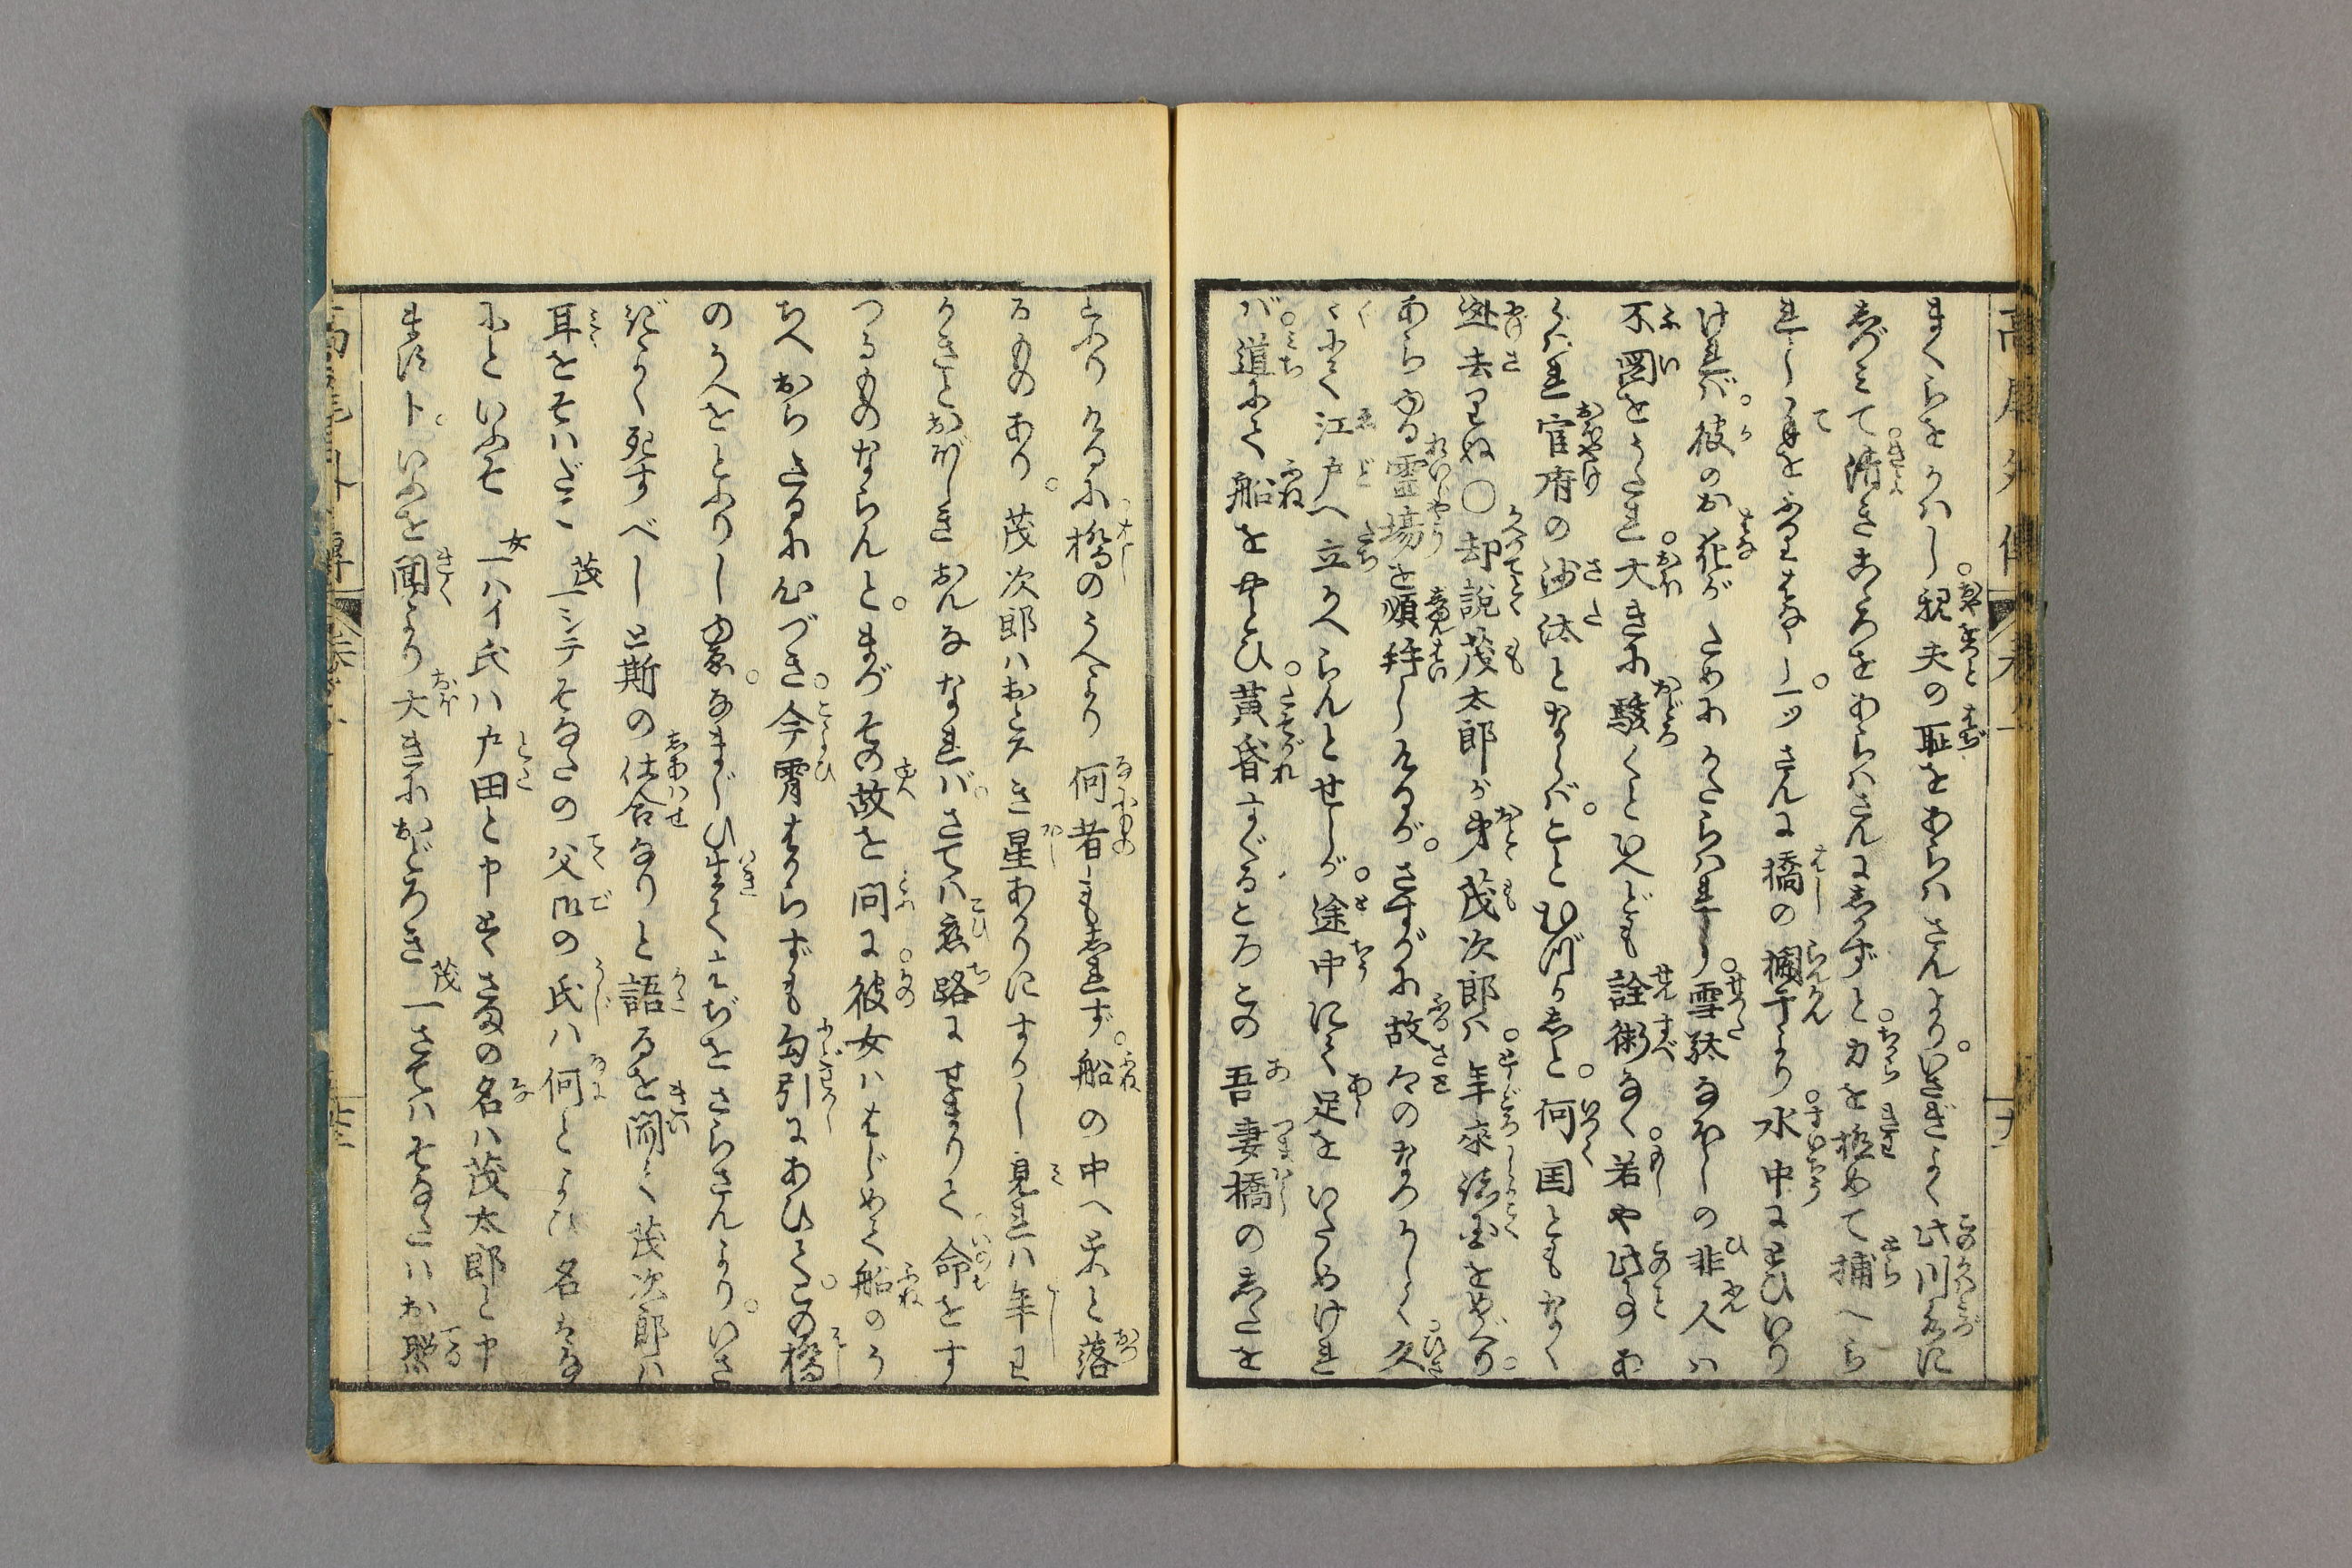 まくらをかハし。親夫の恥をあらハさんより。いさぎよく此川水に
しづミて清きこゝろをあらハさんにしかずと。力を極めて捕へら
れし手をふりはなし。一ツさんに橋の欄干より水中にとひいり
けれバ。彼のお花がためにかたらハれし。雪駄なほしの非人ハ
不図をうたれ。大きに駭くといへども詮術なく。若や此事のあ
らハれ官府の沙汰とならバ。ことむづかしと。何国ともなく
逃去りぬ○却説茂太郎が弟茂次郎ハ。年来諸国をめぐり。
あらゆる霊場を順拝しけるが。さすがに故郷のなつかしく。久
〻にて江戸へ立かへらんとせしが。途中にて足をいためけれ
バ。道にて船をやとひ。黄昏すぐるころこの吾妻橋の下を
とふりけるに。橋のうへより何者ともしれず。船の中へ𫝶と落
るものあり。茂次郎ハおとろき星あかりにすかし見れハ年わ
かきとおぼしきおんななれバ。さてハ恋路にせまりて命をす
つるものならんと。まづその故を問に。彼女ハはじめて船のう
ちへおちたるに心づき。今宵はからずも勾引にあひて。この橋
のうへをとふりしゆゑ。なまじひ生てはぢをさらさんより。いさ
ぎよく死すべしと斯の仕合なりと語るを聞て茂次郎ハ
耳をそバだて 茂一シテそなたの父御の氏ハ何とよび名ハな
にといふぞ 女一ハイ氏ハ戸田と申ましその名ハ茂太郎と申
ます ト。いふを聞より大きにおどろき 茂一さてハそなたハお照